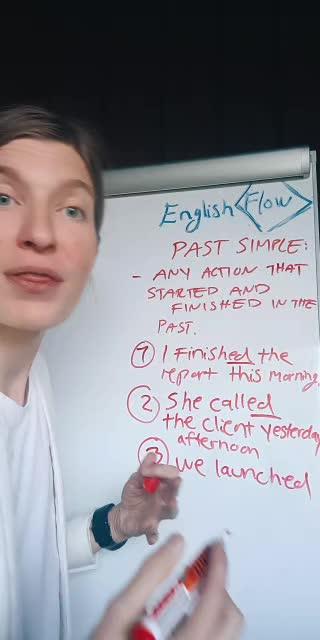 English Flow
PAST SIMPLE:
- ANY ACTION THAT
STARTED AND
FINISHED IN THE
PAST.
1 I Finished the
report this morning
2 She called
the client yesterday
afternoon
3 we launched